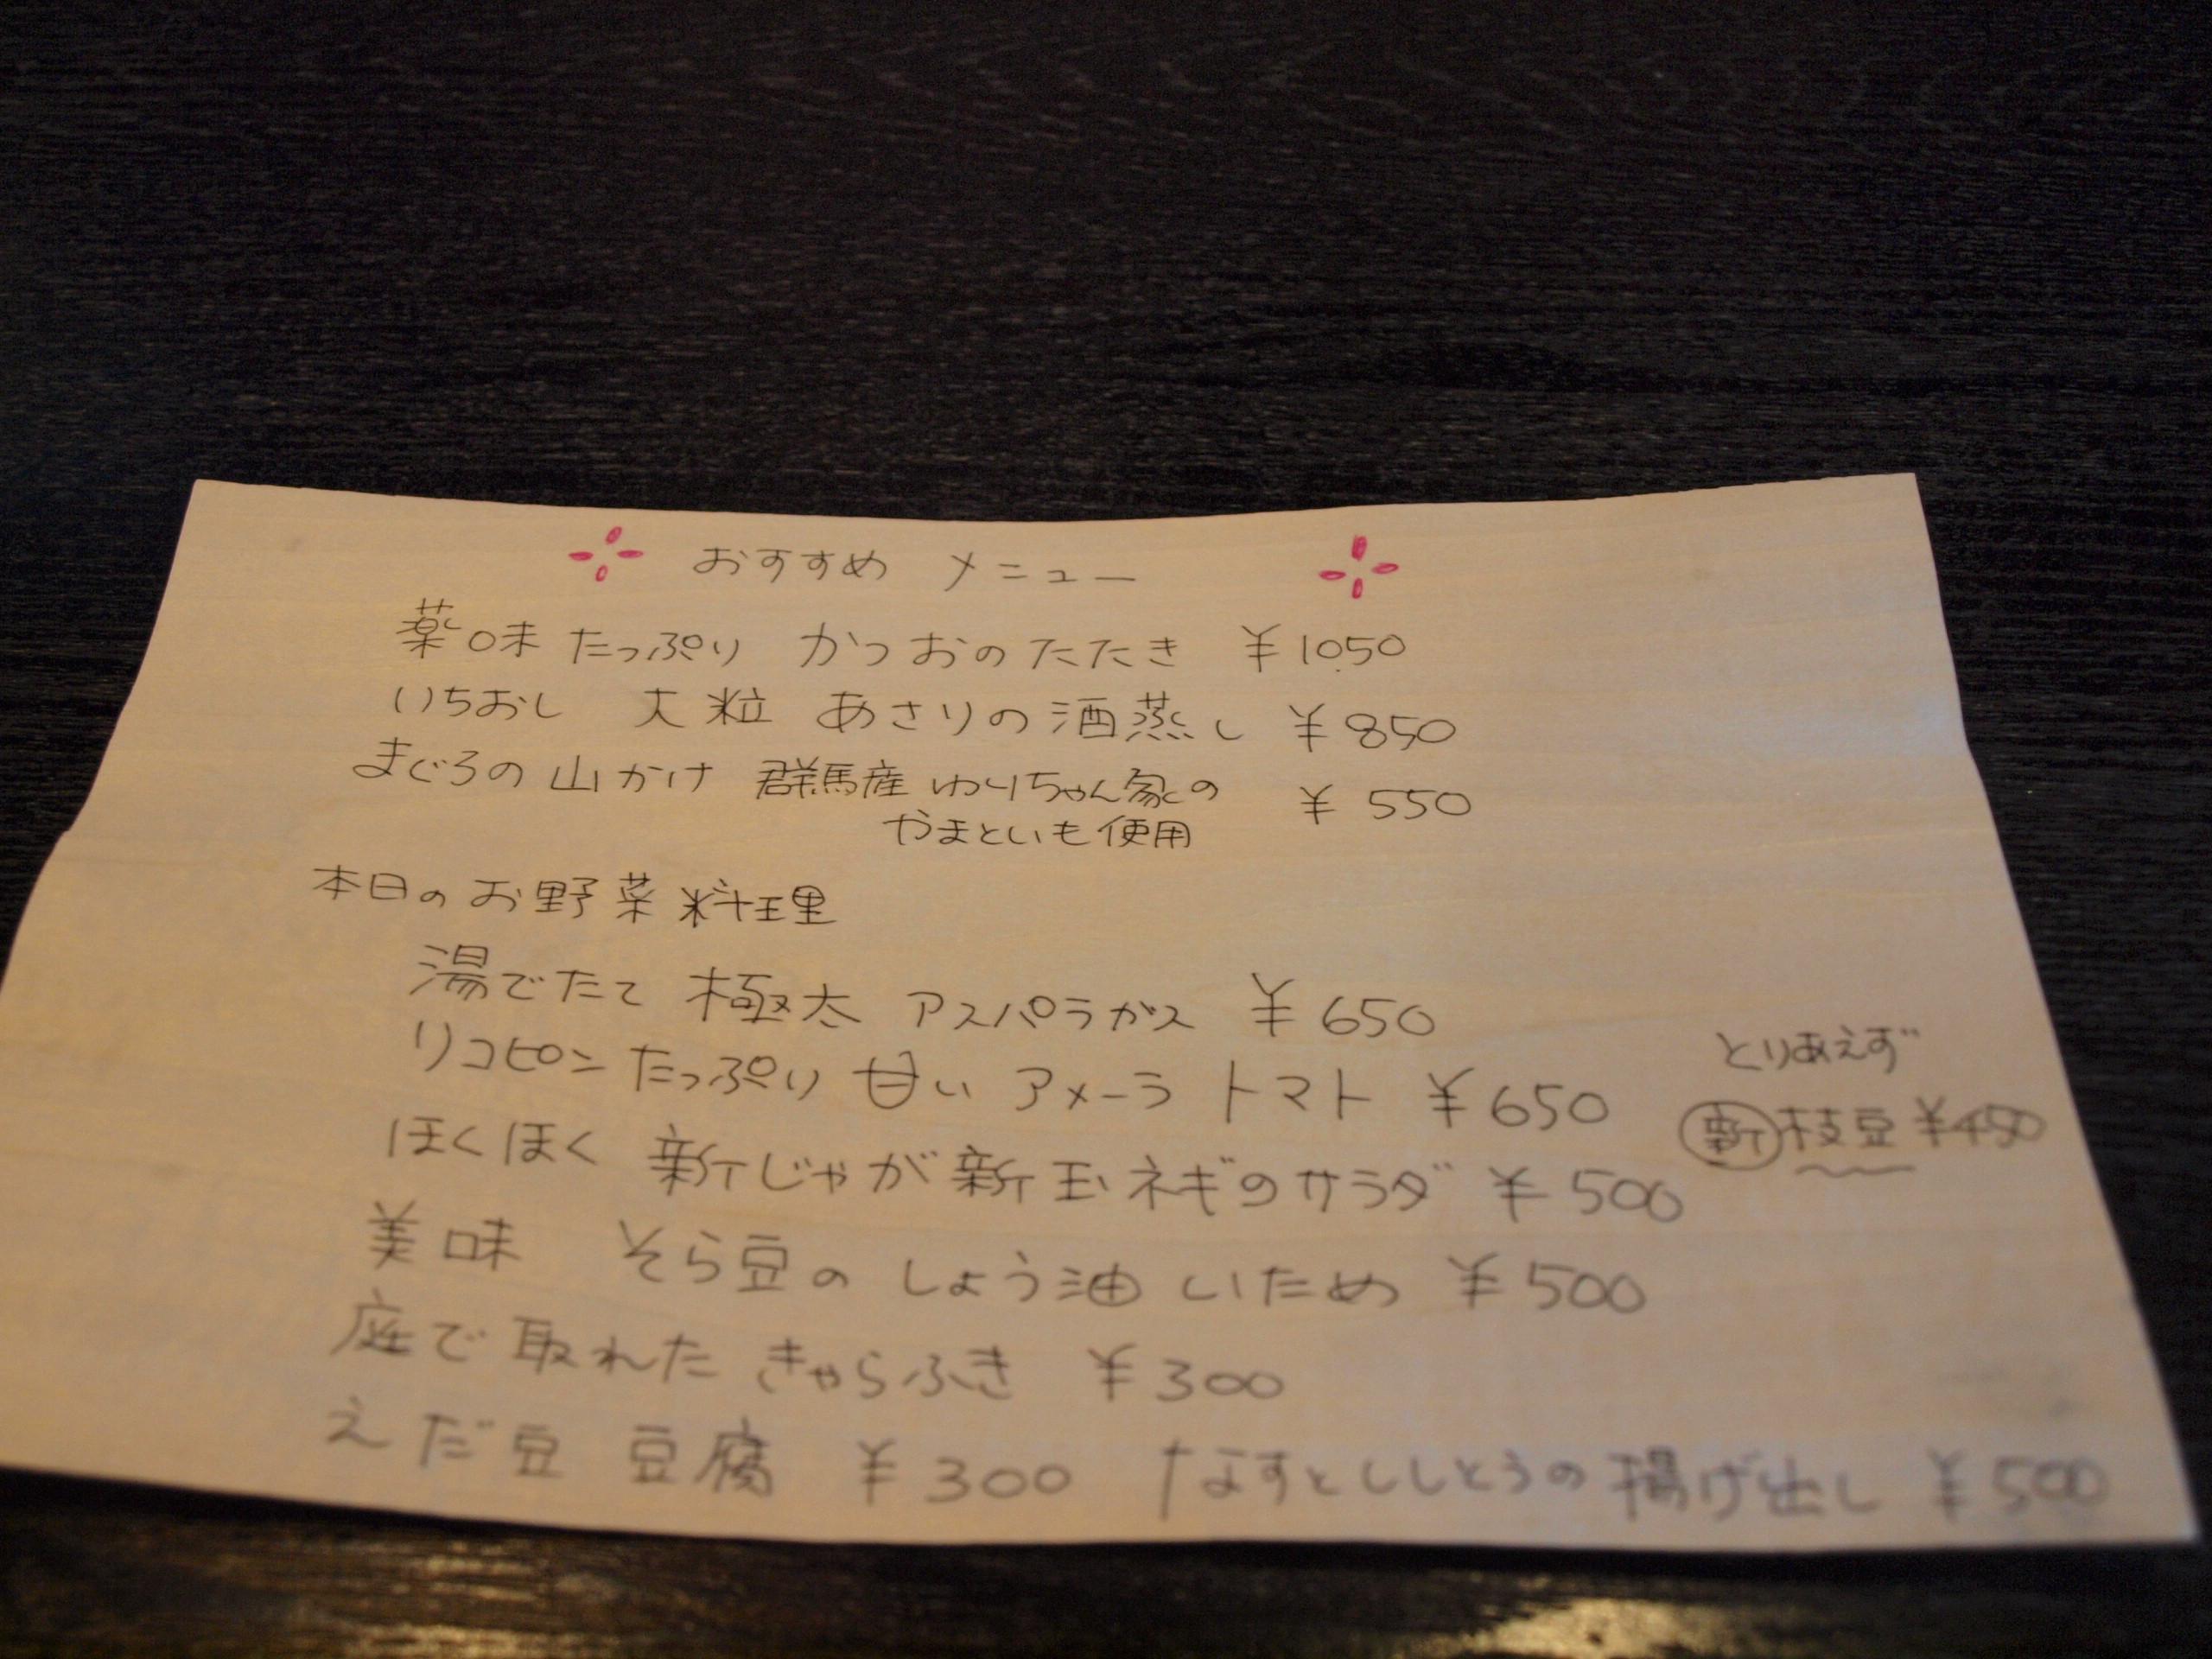 おすすめ メニュー
薬味たっぷり かつおのたたき ¥1050
いちおし 大粒 あさりの酒蒸し ¥850
まぐろの山かけ 群馬産 ゆりちゃん家の ¥550
やまといも使用
本日のお野菜料理
湯でたて 極太 アスパラガス ¥650
リコピンたっぷり 甘い アメーラ トマト ¥650
ほくほく 新じゃが新玉ネギのサラダ ¥500
美味 そら豆のしょう油いため ¥500
庭で取れた きゃらぶき ¥300
えだ豆 豆腐 ¥300 なすとししとうの揚げ出し ¥500
とりあえず
新 枝豆 ¥450